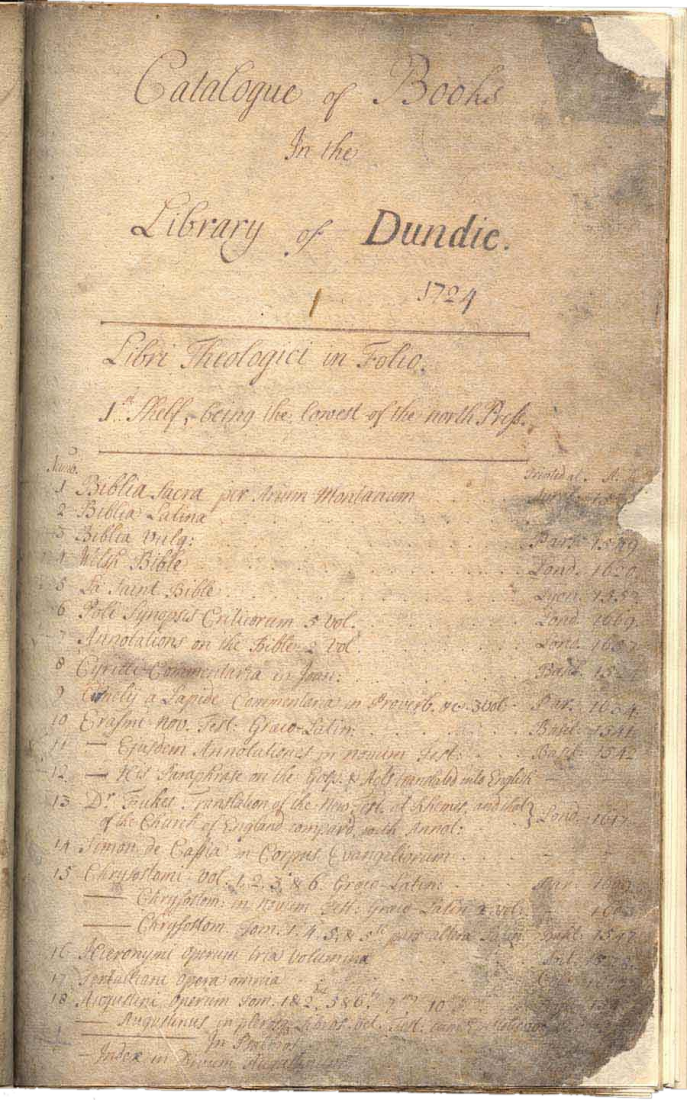 Catalogue of Books
In the
Library of Dundie.
1724
Libri Theologici in Folio.
1st Shelf, being the lowest of the north Press.
Numb. Printed at
1 Biblia Sacra per Arium Montanum
2 Biblia Latina
3 Biblia Vulg: Par.
4 Welsh Bible Lond. 1620
5 La Saint Bible
6 Poli Synopsis Criticorum 5 vol. Lond. 1669
7 Annotations on the Bible 2 Vol Lond.
8 Cyrilli Commentaria in Joan: Basil
9 Cornelij a Lapide Commentaria in Proverb. &c. 3 vol. Par.
10 Erasmi Nov. Test. Graeco-Latin. Basil 1541
11 — Ejusdem Annotationes in novum Test. Basil 1542
12 — His Paraphrase on the Gosp. & Acts translated into English
13 Dr. Fulkes Translation of the New Test. at Rhemes, and that
of the Church of England compar'd, with Annot: Lond. 1617
14 Simon de Cassia in Corpus Evangeliorum
15 Chrysostomi Vol. 1, 2, 3, & 6. Graeco-Latin: Par.
— Chrysostom: in novum Test: Graeco-Latin 2 Vol:
— Chrysostom Tom. 1, 4, 5, & Basil 1547
16 Hieronymi Operum tria Volumina
17 Tertulliani Opera omnia
18 Augustini Operum Tom. 1 & 2
— Augustinus in
In Psalmos
— Index in